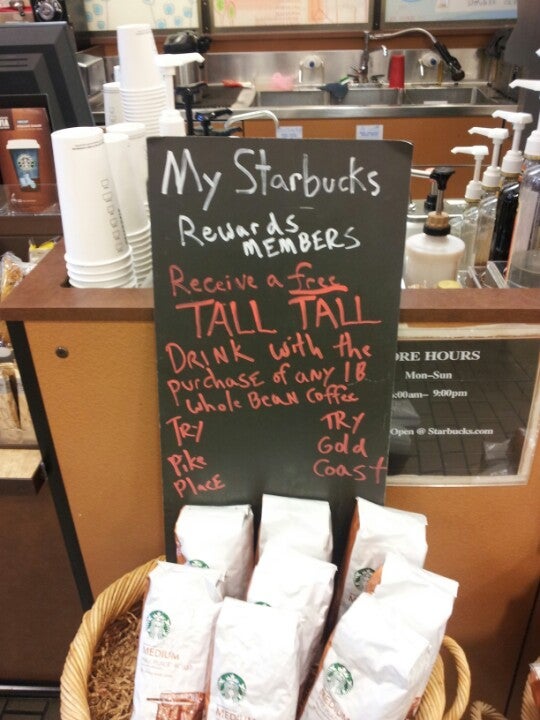 My Starbucks
Rewards
MEMBERS
Receive a free
TALL TALL
DRINK with the
purchase of any 1B
Whole Bean Coffee
TRY
Pike
Place
TRY
Gold
Coast
ORE HOURS
Mon–Sun
:00am– 9:00pm
Open @ Starbucks.com
MEDIUM
MEDIUM